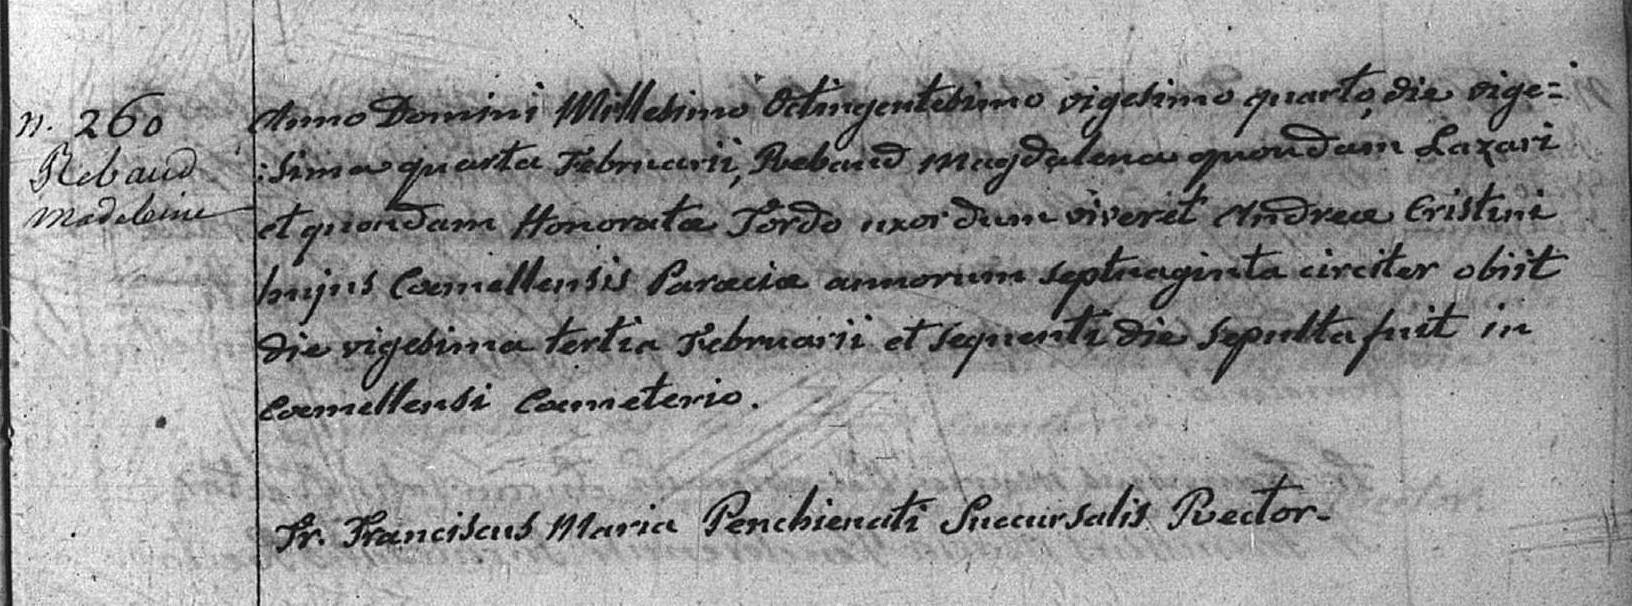 n. 260
Rebaud
Madeleine
Anno Domini Millesimo Octingentesimo vigesimo quarto, die vige=
:sima quarta Februarii, Rebaud Magdalena quondam Lazari
et quondam Honoratæ Tordo uxor dum viveret Andreæ Cristini
hujus Coemellensis Paræciæ annorum septuaginta circiter obiit
die vigesima tertia Februarii et sequenti die sepulta fuit in
Coemellensi Coemeterio.
Fr. Franciscus Maria Penchienati Succursalis Rector.